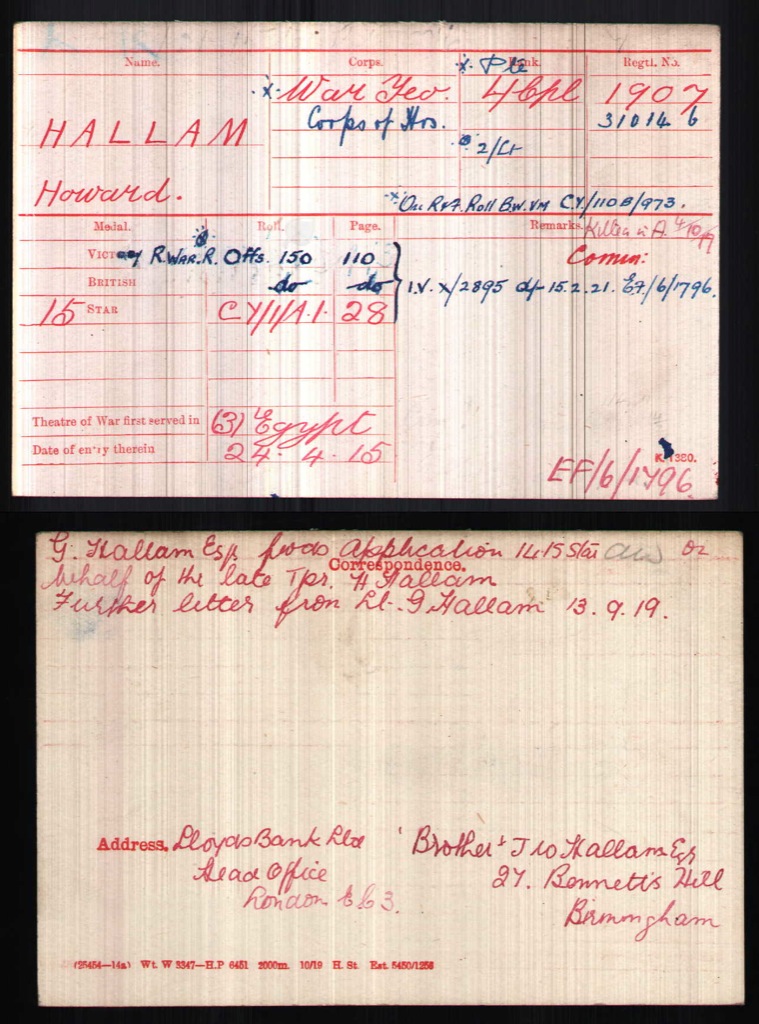 Name. Corps. Rank. Regtl. No.
x. Pte
x War Yeo. 4 Cpl 1907
HALLAM Corps of Hrs. 310146
2/Lt
Howard.
x On R & F. Roll B.W.VM CY/110B/973.
Medal. Roll. Page. Remarks. Killed in A. 4/10/17
VICTORY R.WAR.R. Offs. 150 110 Comm:
BRITISH do do I.V. X/2895 d/- 15.2.21. EF/6/1796.
15 STAR CY/1/A.1. 28
Theatre of War first served in (3) Egypt
Date of entry therein 24. 4. 15
K. 1380.
EF/6/1796.
G. Hallam Esqr fwds Application 14.15 Star on
Correspondence.
behalf of the late Tpr. H Hallam
Further letter from Lt. G Hallam 13.9.19.
Address. Lloyds Bank Ltd 'Brother' J W Hallam Esqr
Head Office 27. Bennett's Hill
London E C 3. Birmingham
(25454—14a) Wt. W 3347—H.P 6451 2000m. 10/19 H. St. Est. 5450/1256